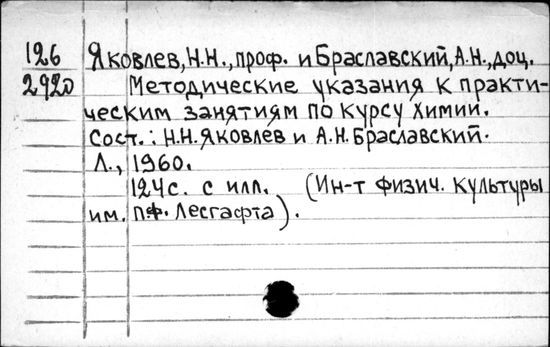 126 Яковлев, Н.Н., проф. и Браславский, А.Н., доц.
2920 Методические указания к практи-
ческим занятиям по курсу химии.
Сост.: Н.Н. Яковлев и А.Н. Браславский.
Л., 1960.
124с. с илл. (Ин-т физич. культуры
им. ПФ. Лесгафта).